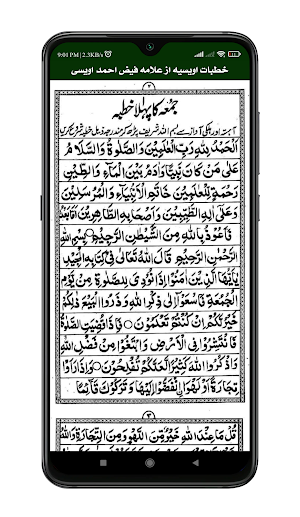 9:01 PM | 2.3KB/s
خطبات اویسیہ از علامہ فیض احمد اویسی
۲
جمعہ کا پہلا خطبہ
آہستہ اور ہلکی آواز سے بسم اللہ شریف پڑھ کر مندرجہ ذیل خطبہ شروع کریں
اَلْحَمْدُ لِلّٰهِ رَبِّ الْعٰلَمِيْنَ وَالصَّلٰوةُ وَالسَّلَامُ
عَلٰى مَنْ كَانَ نَبِيًّا وَّاٰدَمُ بَيْنَ الْمَاءِ وَالطِّيْنِ
رَحْمَةٍ لِّلْعٰلَمِيْنَ خَاتَمِ الْاَنْبِيَاءِ وَالْمُرْسَلِيْنَ
وَعَلٰى اٰلِهِ الطَّيِّبِيْنَ وَاَصْحَابِهِ الطَّاهِرِيْنَ اَمَّا بَعْدُ
فَاَعُوْذُ بِاللّٰهِ مِنَ الشَّيْطٰنِ الرَّجِيْمِ بِسْمِ اللّٰهِ
الرَّحْمٰنِ الرَّحِيْمِ قَالَ اللّٰهُ تَعَالٰى فِيْ كِتَابِهِ الْمَجِيْدِ
يٰاَيُّهَا الَّذِيْنَ اٰمَنُوْا اِذَا نُوْدِيَ لِلصَّلٰوةِ مِنْ يَّوْمِ
الْجُمُعَةِ فَاسْعَوْا اِلٰى ذِكْرِ اللّٰهِ وَ ذَرُوا الْبَيْعَ ذٰلِكُمْ
خَيْرٌ لَّكُمْ اِنْ كُنْتُمْ تَعْلَمُوْنَ ○ فَاِذَا قُضِيَتِ الصَّلٰوةُ
فَانْتَشِرُوْا فِي الْاَرْضِ وَ ابْتَغُوْا مِنْ فَضْلِ اللّٰهِ
وَاذْكُرُوا اللّٰهَ كَثِيْرًا لَّعَلَّكُمْ تُفْلِحُوْنَ ○ وَاِذَا رَاَوْا
تِجَارَةً اَوْ لَهْوَا انْفَضُّوْا اِلَيْهَا وَ تَرَكُوْكَ قَائِمًا
۳
قُلْ مَا عِنْدَ اللّٰهِ خَيْرٌ مِّنَ اللَّهْوِ وَمِنَ التِّجَارَةِ وَاللّٰهُ